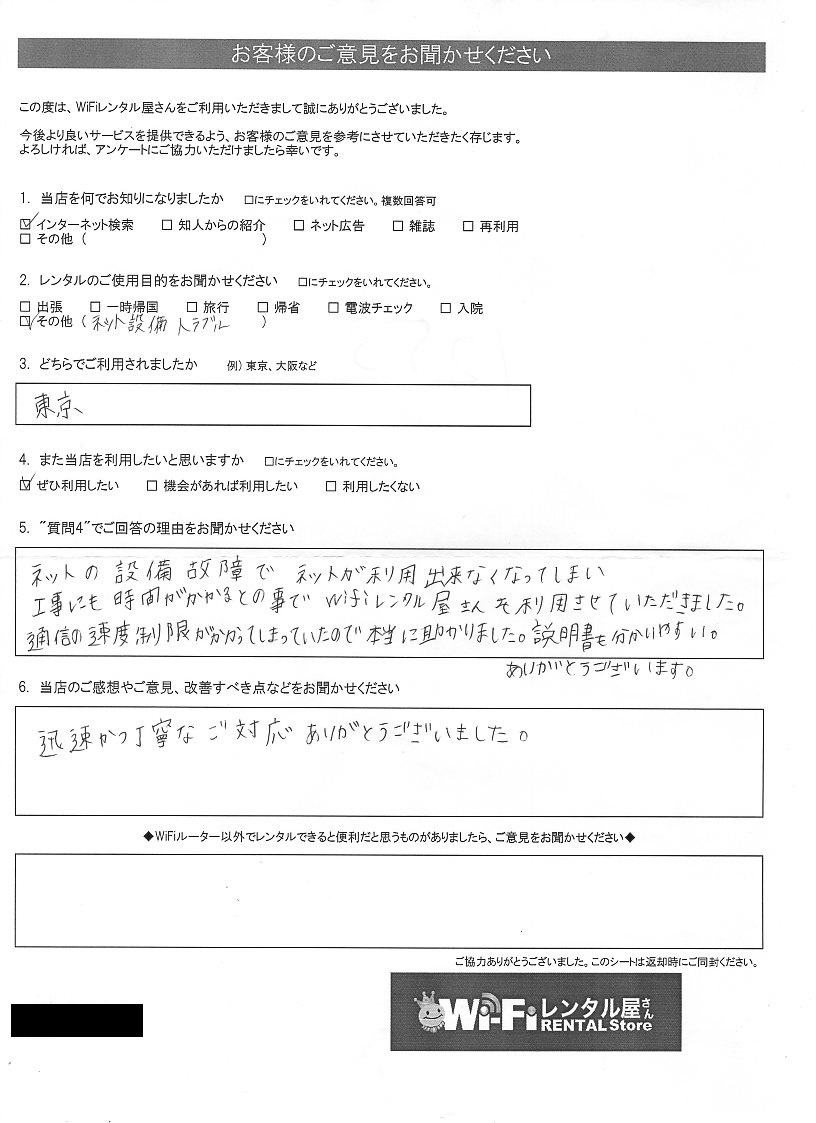 お客様のご意見をお聞かせください
この度は、WiFiレンタル屋さんをご利用いただきまして誠にありがとうございました。
今後より良いサービスを提供できるよう、お客様のご意見を参考にさせていただきたく存じます。
よろしければ、アンケートにご協力いただけましたら幸いです。
1. 当店を何でお知りになりましたか □にチェックをいれてください。複数回答可
☑インターネット検索 □ 知人からの紹介 □ ネット広告 □ 雑誌 □ 再利用
□ その他 ( )
2. レンタルのご使用目的をお聞かせください □にチェックをいれてください。
□ 出張 □ 一時帰国 □ 旅行 □ 帰省 □ 電波チェック □ 入院
☑その他 ( ネット設備トラブル )
3. どちらでご利用されましたか 例) 東京、大阪など
東京、
4. また当店を利用したいと思いますか □にチェックをいれてください。
☑ぜひ利用したい □ 機会があれば利用したい □ 利用したくない
5. "質問4"でご回答の理由をお聞かせください
ネットの設備故障でネットが利用出来なくなってしまい
工事にも時間がかかるとの事でWifiレンタル屋さんを利用させていただきました。
通信の速度制限がかかってしまっていたので本当に助かりました。説明書も分かりやすい。
ありがとうございます。
6. 当店のご感想やご意見、改善すべき点などをお聞かせください
迅速かつ丁寧なご対応ありがとうございました。
◆WiFiルーター以外でレンタルできると便利だと思うものがありましたら、ご意見をお聞かせください◆
ご協力ありがとうございました。このシートは返却時にご同封ください。
Wi-Fiレンタル屋さん
RENTAL Store